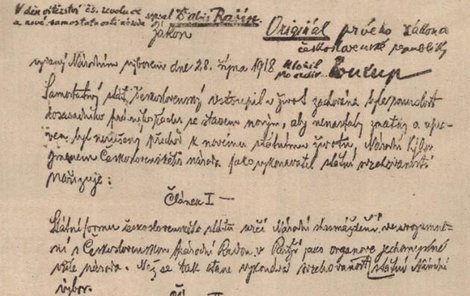 V den vítězství čs. revoluce sepsal Dr. Alois Rašín
a nové samostatnosti národa
Originál prvého zákona
československé republiky
Zákon
vydaný Národním výborem dne 28. října 1918
Soukup
Samostatný stát československý vstoupil v život. Zachována byla souvislost
dosavadního právního řádu se stavem novým, aby nenastaly zmatky a upra-
ven byl nerušený přechod k novému státnímu životu, Národní výbor
jménem Československého národa jako vykonavatel státní svrchovanosti
nařizuje:
Článek I
Státní formu československého státu určí Národní shromáždění ve srozumě-
ní s Československou Národní Radou v Paříži jako orgánové jednomyslné
vůle národa. Než se tak stane vykonává svrchovanost státní Národní
výbor.